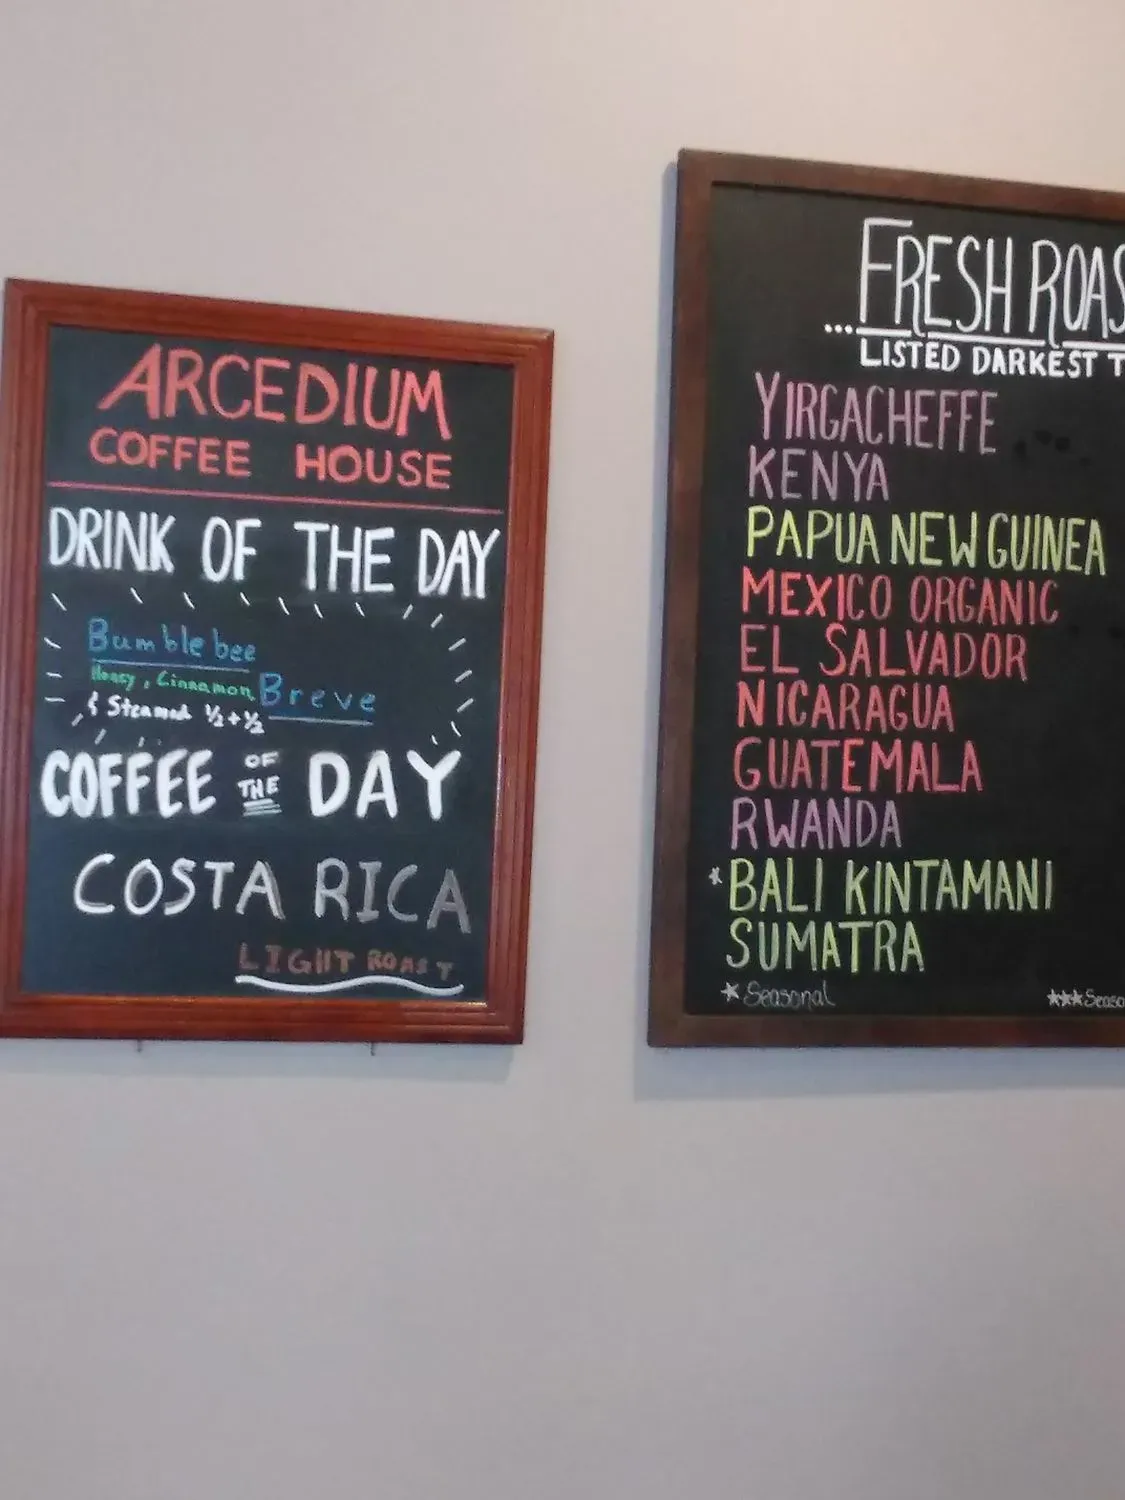 ARCEDIUM
COFFEE HOUSE
DRINK OF THE DAY
Bumblebee
Honey, Cinnamon Breve
& Steamed ½+½
COFFEE OF THE DAY
COSTA RICA
LIGHT ROAST
FRESH ROAS
...LISTED DARKEST T
YIRGACHEFFE
KENYA
PAPUA NEW GUINEA
MEXICO ORGANIC
EL SALVADOR
NICARAGUA
GUATEMALA
RWANDA
*BALI KINTAMANI
SUMATRA
*Seasonal
***Seaso